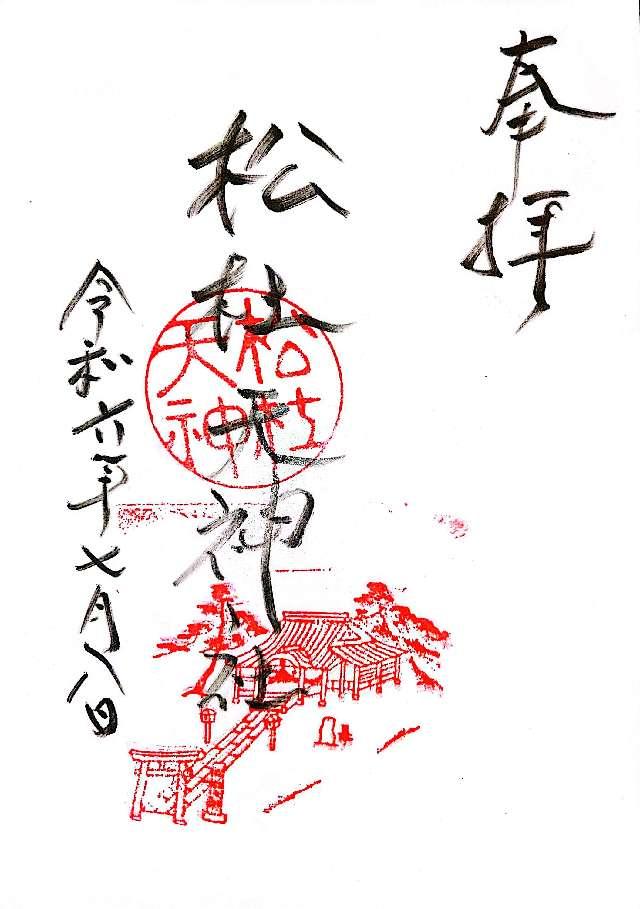 奉拝
松杜天神社
松杜
天神
令和六年七月八日